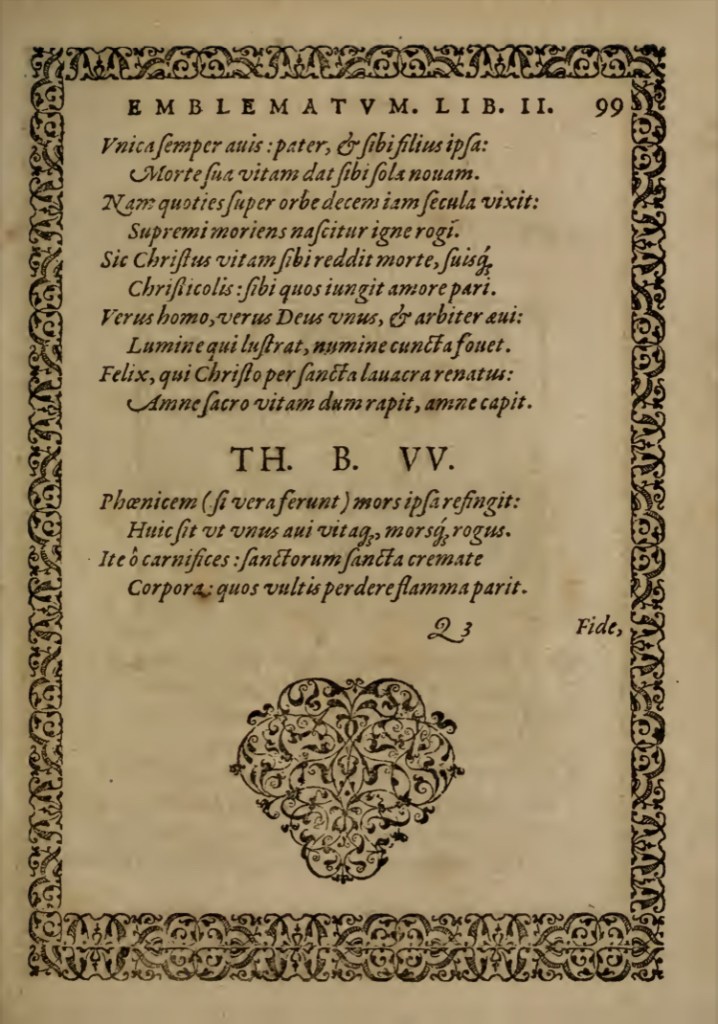 EMBLEMATVM. LIB. II. 99
Vnica ſemper auis: pater, & ſibi filius ipſa:
Morte ſua vitam dat ſibi ſola nouam.
Nam quoties ſuper orbe decem iam ſecula vixit:
Supremi moriens naſcitur igne rogi.
Sic Chriſtus vitam ſibi reddit morte, ſuisq́;
Chriſticolis: ſibi quos iungit amore pari.
Verus homo, verus Deus vnus, & arbiter æui:
Lumine qui luſtrat, numine cuncta fouet.
Felix, qui Chriſto per ſancta lauacra renatus:
Amne ſacro vitam dum rapit, amne capit.
TH. B. VV.
Phœnicem (ſi vera ferunt) mors ipſa refingit:
Huic ſit vt vnus aui vitaq́;, morsq́; rogus.
Ite ô carnifices: ſanctorum ſancta cremate
Corpora: quos vultis perdere flamma parit.
Q 3 Fide,